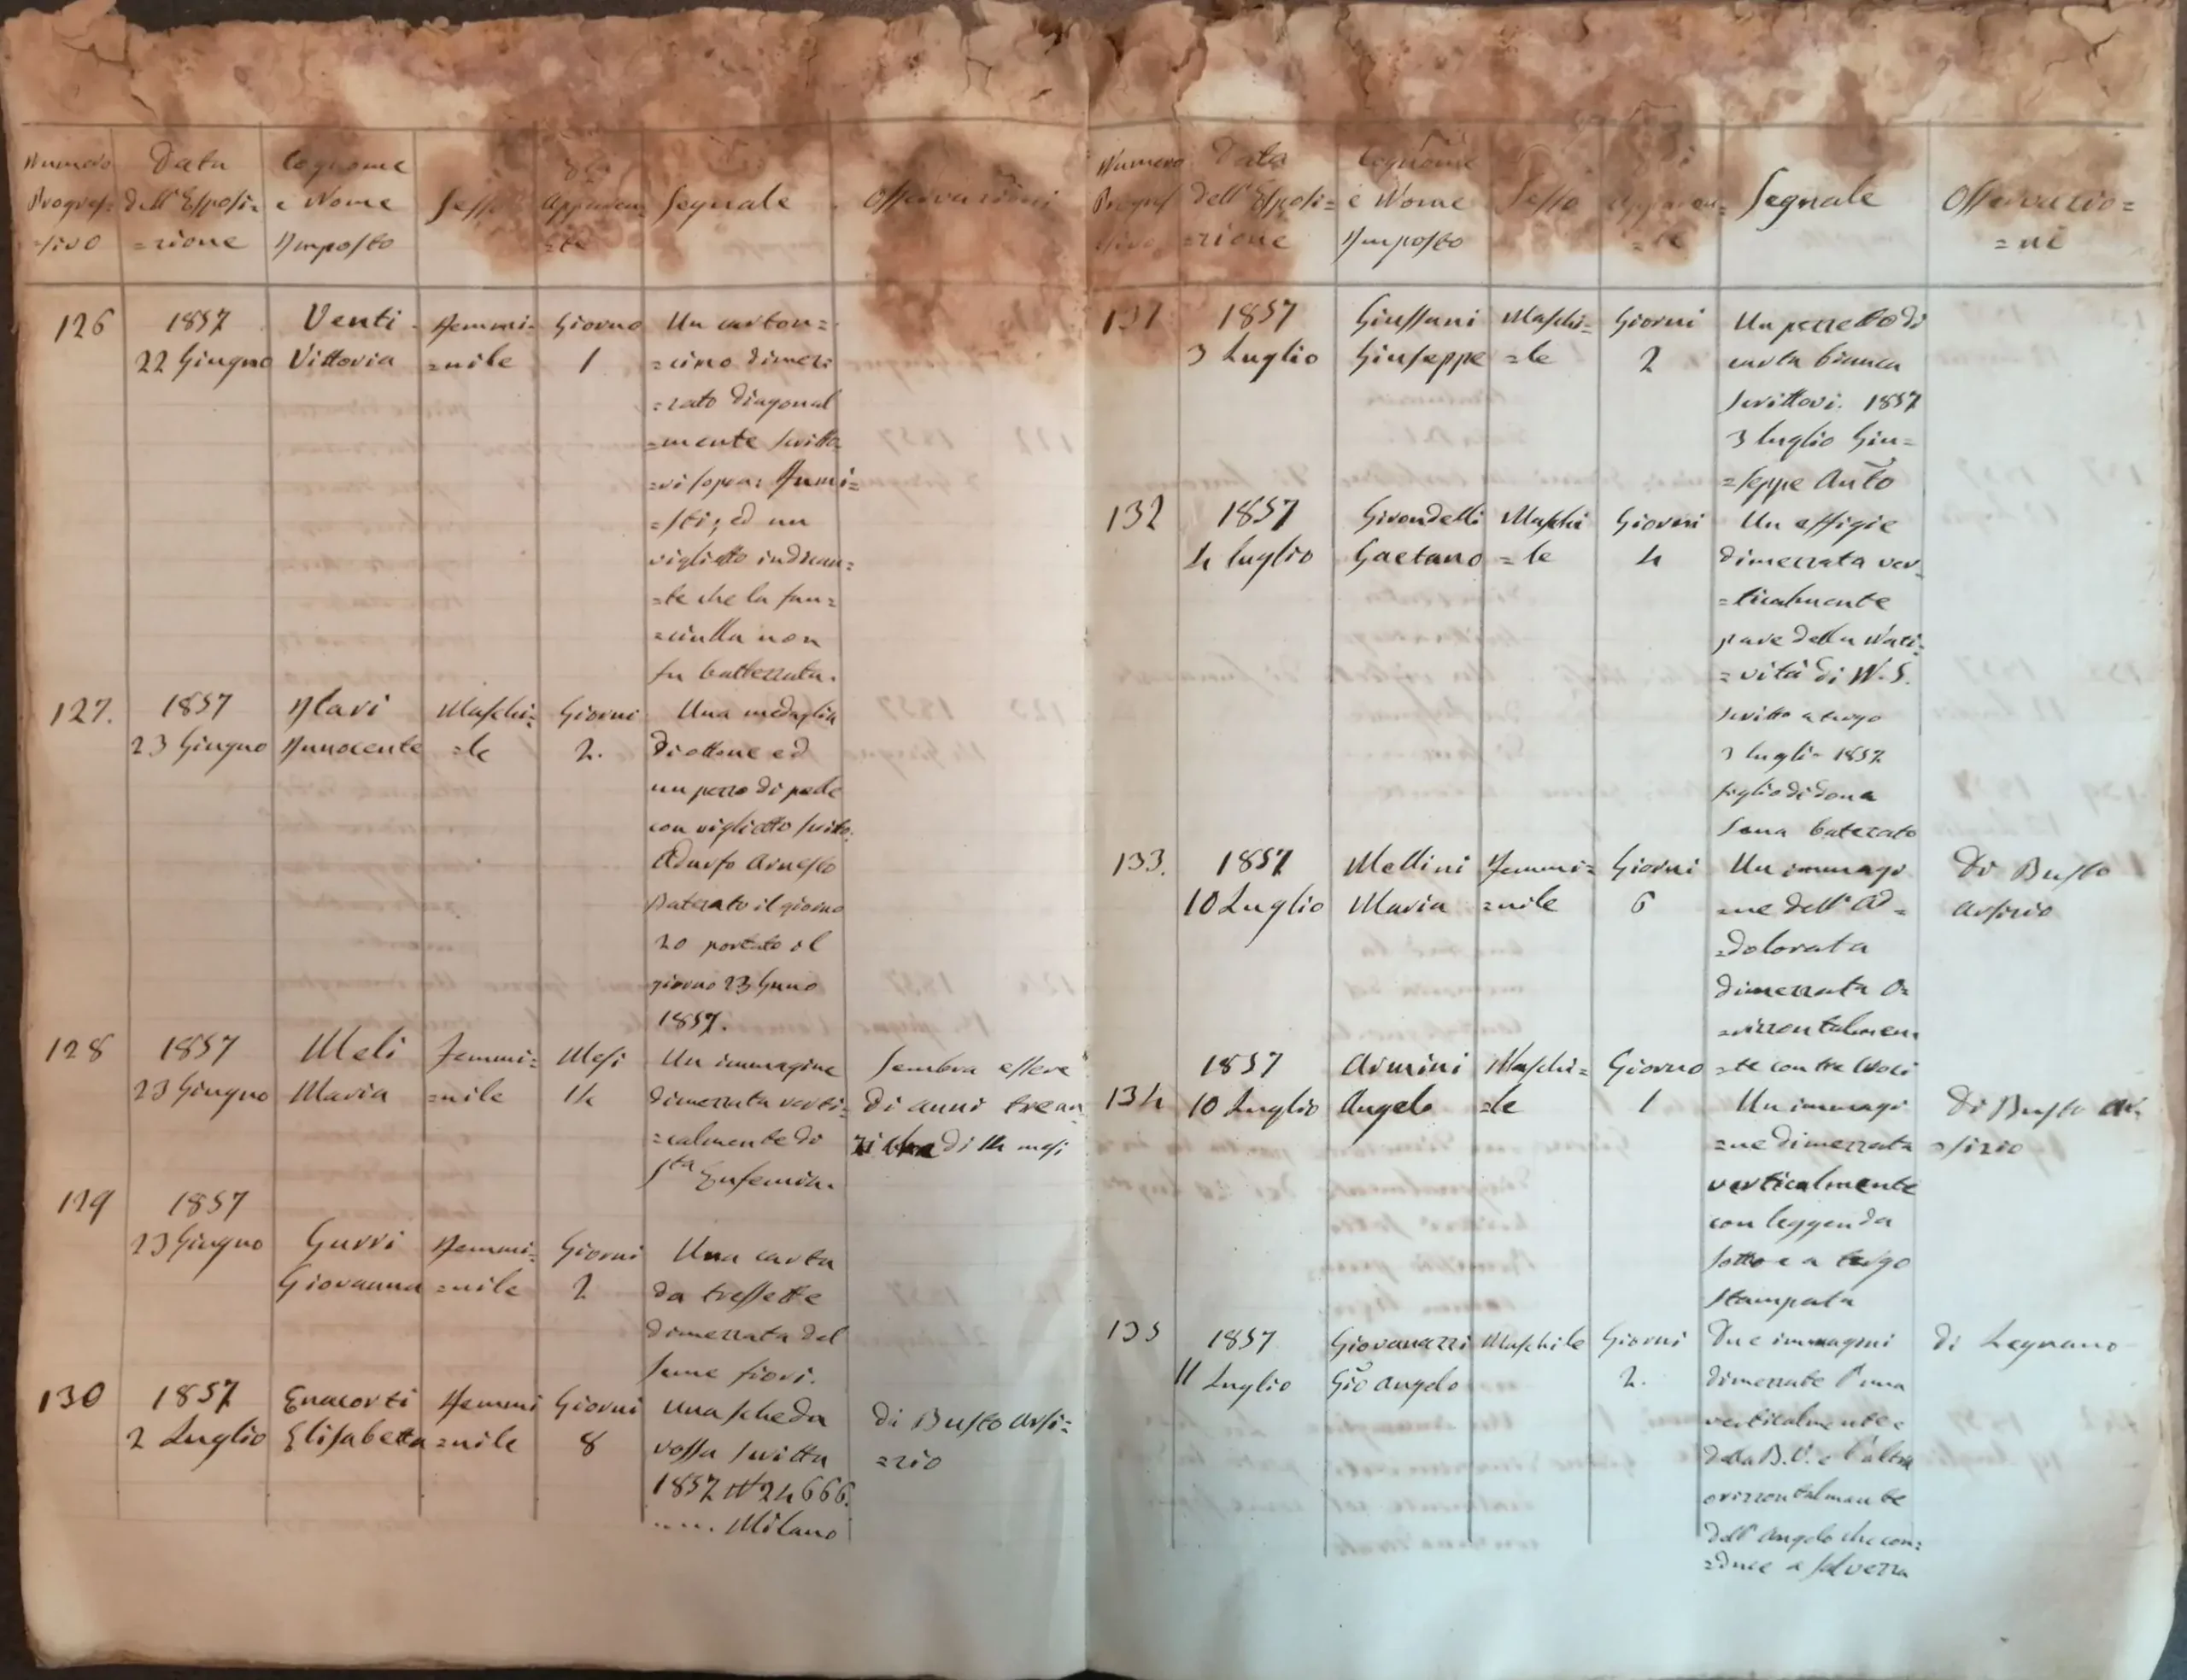 Numero Progres= =sivo
Data dell'Esposi= =zione
Cognome e Nome Imposto
Sesso
Età Apparen= =te
Segnale
Osservazioni
126
1857
22 Giugno
Venti
Vittoria
Femmi=
=nile
Giorno
1
Un carton=
=cino dimez=
=zato diagonal
=mente scritto
=vi sopra:
=sti; ed un
viglietto indican=
=te che la fan=
=ciulla non
fu battezzata.
127.
1857
23 Giugno
Ilari
Innocente
Maschi=
=le
Giorni
2.
Una medaglia
di ottone ed
un pezzo di pelle
con viglietto scrito:
Arnesto
Batezato il giorno
20 portato il
giorno 23 Gnno
1857.
128
1857
23 Giugno
Meli
Maria
Femmi=
=nile
Mesi
14
Un immagine
dimezzata verti=
=calmente di
Sta Eufemia.
Sembra essere
di anni tre an=
zi che di 14 mesi
129
1857
23 Giugno
Gurri
Giovanna
Femmi=
=nile
Giorni
2
Una carta
da tressette
dimezzata del
seme fiori.
130
1857
2 Luglio
Enacorti
Elisabetta
Femmi
=nile
Giorni
8
Una scheda
rossa scritta
1857 N 24666.
..... Milano
di Busto Arsi=
=zio
Numero Progres =sivo
Data dell'Esposi= =zione
Cognome e Nome Imposto
Sesso
Apparen= =te
Segnale
Osservazio= =ni
131
1857
3 Luglio
Giussani
Giuseppe
Maschi=
=le
Giorni
2
Un pezzetto di
carta bianca
scrittovi. 1857
3 luglio Giu=
=seppe Anto
132
1857
4 luglio
Girondelli
Gaetano
Maschi
=le
Giorni
4
Un effigie
dimezzata ver=
=ticalmente
pare della Nati=
=vità di N. S.
scritto a tergo
3 lugli- 1857
figlio di dona
sana batezato
133.
1857
10 Luglio
Mellini
Maria
Femmi=
=nile
Giorni
6
Un immagi
=ne dell'Ad=
=dolorata
dimezzata o=
=rizzontalmen=
=te con tre croci
Di Busto
Arsizio
134
1857
10 Luglio
Armini
Angelo
Maschi=
=le
Giorno
1
Un immagi
=ne dimezzata
verticalmente
con leggenda
sotto e a tergo
stampata
Di Busto Ar=
=sizio
135
1857
11 Luglio
Giovanazzi
Gio Angelo
Maschile
Giorni
2.
Due immagini
dimezzate l'una
verticalmente
della B. V. e l'altra
orizzontalmente
dell'Angelo che con=
=duce a salvezza
di Legnano